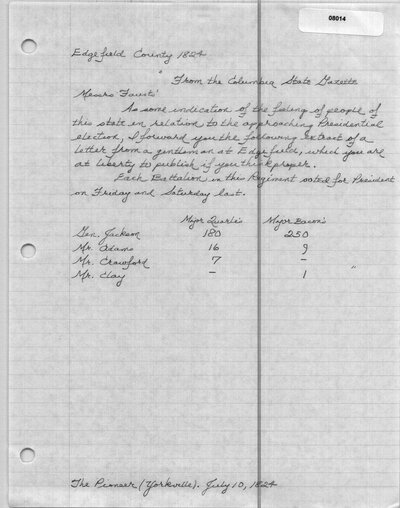 08014
Edgefield County 1824
" From the Columbia State Gazette
Messrs Fausts'
As some indication of the feeling of people of
this state in relation to the approaching Presidential
election, I forward you the following extract of a
letter from a gentleman at Edgefield, which you are
at liberty to publish if you think proper.
Each Battalion in this Regiment voted for President
on Friday and Saturday last.
Major Quarles Major Bacon's
Gen. Jackson 180 250
Mr. Adams 16 9
Mr. Crawford 7 — "
Mr. Clay — 1
The Pioneer (Yorkville). July 10, 1824